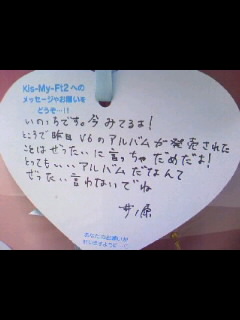 Kis-My-Ft2への
メッセージやお願いを
どうぞ…!!
いのっちです。今みてるよ!
ところで昨日 V6のアルバムが発売された
ことはぜったいに言っちゃだめだよ!
とってもいいアルバムだなんて
ぜったい言わないでね
井ノ原
あなたのお願いが